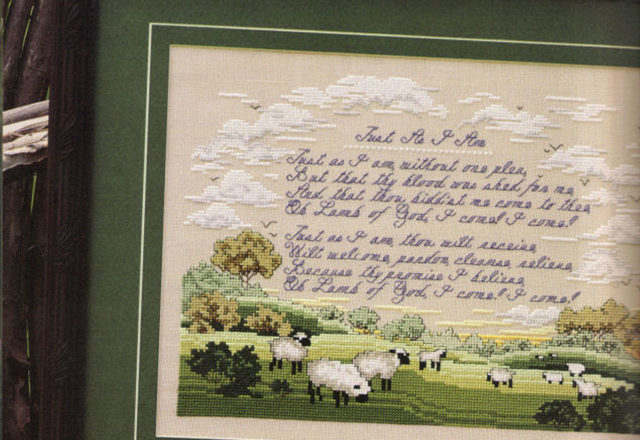 Just As I Am
Just as I am, without one plea,
But that thy blood was shed for me,
And that thou bidd'st me come to thee,
Oh Lamb of God, I come! I come!
Just as I am, thou wilt receive,
Wilt welcome, pardon, cleanse, relieve,
Because thy promise I believe,
Oh Lamb of God, I come! I come!